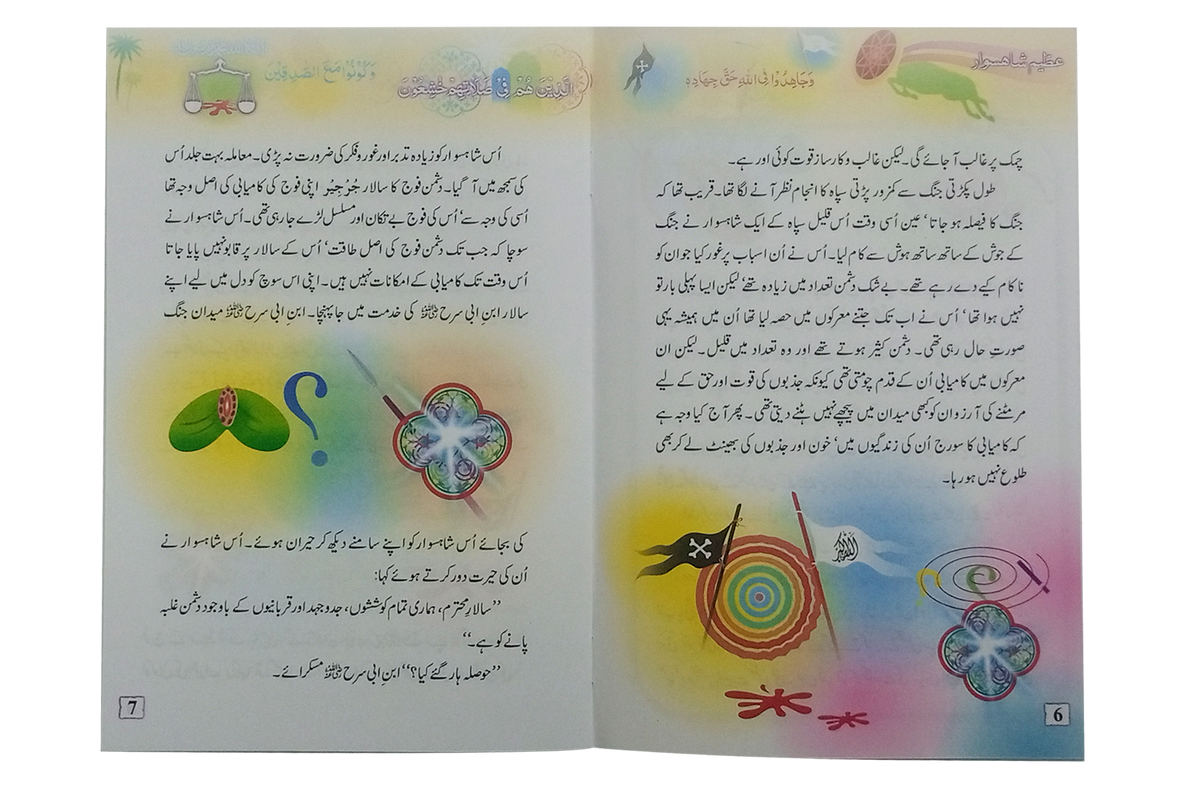 عظیم شاہسوار
وَجَاهِدُوا فِی اللهِ حَقَّ جِهَادِهٖ
چمک پر غالب آ جائے گی۔ لیکن غالب و کارساز قوت کوئی اور ہے۔
طول پکڑتی جنگ سے کمزور پڑتی سپاہ کا انجام نظر آنے لگا تھا۔ قریب تھا کہ
جنگ کا فیصلہ ہو جاتا‘ عین اُسی وقت اُس قلیل سپاہ کے ایک شاہسوار نے جنگ
کے جوش کے ساتھ ساتھ ہوش سے کام لیا۔ اُس نے اُن اسباب پر غور کیا جو ان کو
ناکام کیے دے رہے تھے۔ بے شک دشمن تعداد میں زیادہ تھے‘ لیکن ایسا پہلی بار تو
نہیں ہوا تھا‘ اُس نے اب تک جتنے معرکوں میں حصہ لیا تھا اُن میں ہمیشہ یہی
صورتِ حال رہی تھی۔ دشمن کثیر ہوتے تھے اور وہ تعداد میں قلیل۔ لیکن ان
معرکوں میں کامیابی اُن کے قدم چومتی تھی کیونکہ جذبوں کی قوت اور حق کے لیے
مر مٹنے کی آرزو ان کو کبھی میدان میں پیچھے نہیں ہٹنے دیتی تھی۔ پھر آج کیا وجہ ہے
کہ کامیابی کا سورج اُن کی زندگیوں میں‘ خون اور جذبوں کی بھینٹ لے کر بھی
طلوع نہیں ہو رہا۔
6
الَّذِیْنَ هُمْ فِیْ صَلَاتِهِمْ خٰشِعُوْنَ
وَكُوْنُوْا مَعَ الصّٰدِقِیْنَ
اُس شاہسوار کو زیادہ تدبر اور غور و فکر کی ضرورت نہ پڑی۔ معاملہ بہت جلد اُس
کی سمجھ میں آ گیا۔ دشمن فوج کا سالار جُرْجِیْر اپنی فوج کی کامیابی کی اصل وجہ تھا
اُسی کی وجہ سے‘ اُس کی فوج بے تکان اور مسلسل لڑے جا رہی تھی۔ اُس شاہسوار نے
سوچا کہ جب تک دشمن فوج کی اصل طاقت‘ اُس کے سالار پر قابو نہیں پایا جاتا
اُس وقت تک کامیابی کے امکانات نہیں ہیں۔ اپنی اس سوچ کو دل میں لیے اپنے
سالار ابنِ ابی سرح ﷛ کی خدمت میں جا پہنچا۔ ابنِ ابی سرح میدان جنگ
؟
کی بجائے اُس شاہسوار کو اپنے سامنے دیکھ کر حیران ہوئے۔ اُس شاہسوار نے
اُن کی حیرت دور کرتے ہوئے کہا:
’’سالارِ محترم، ہماری تمام کوششوں، جدوجہد اور قربانیوں کے باوجود دشمن غلبہ
پانے کو ہے۔‘‘
’’حوصلہ ہار گئے کیا؟‘‘ ابنِ ابی سرح مسکرائے۔
7